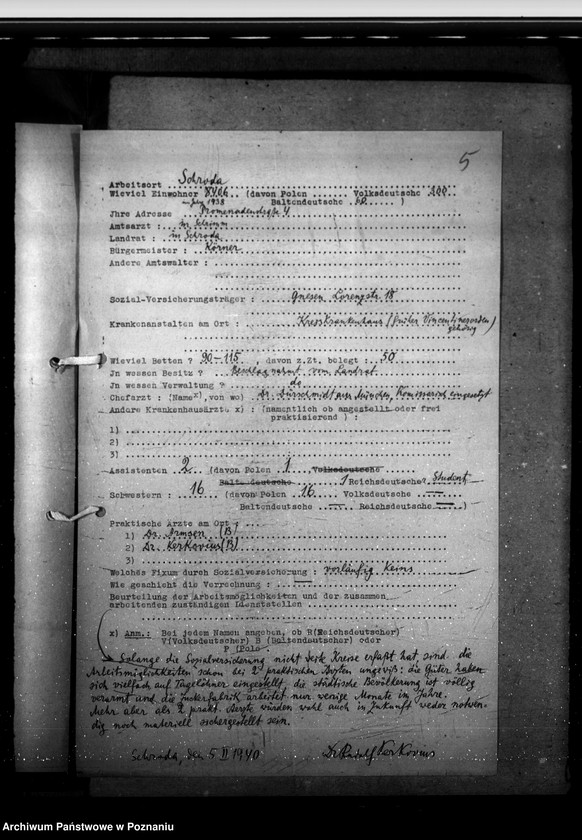 5
Arbeitsort Schroda
Wieviel Einwohner (davon Polen ...... Volksdeutsche 200
im Jahr 1938 Baltendeutsche )
Jhre Adresse Promenadenstraße 4
Amtsarzt : in Schrimm
Landrat : in Schroda
Bürgermeister : Körner
Andere Amtswalter :
Sozial-Versicherungsträger : Gnesen Lorenzstr. 18
Krankenanstalten am Ort : Kreiskrankenhaus (früher Vincentinerorden
gehörig)
Wieviel Betten ? 90-115 , davon z.Zt. belegt : 50
Jn wessen Besitz ? Beschlagnahmt vom Landrat
Jn wessen Verwaltung ? do
Chefarzt : (Name x), von wo) Dr. Dürrschmidt aus München, Komissarisch eingesetzt
Andere Krankenhausärzte x) : (namentlich ob angestellt oder frei
praktisierend ) :
1)
2)
3)
Assistenten 2 (davon Polen 1 Volksdeutsche
Balt.deutsche 1 Reichsdeutscher Student
Schwestern : 16 (davon Polen 16 Volksdeutsche —
Baltendeutsche — Reichsdeutsche — )
Praktische Ärzte am Ort :
1) Dr. Armsen (B)
2) Dr. Kerkovius (B)
3)
Welches Fixum durch Sozialversicherung : vorläufig keins
Wie geschieht die Verrechnung : —
Beurteilung der Arbeitsmöglichkeiten und der zusammen
arbeitenden zuständigen Dienststellen
x) Anm.: Bei jedem Namen angeben, ob R(Reichsdeutscher)
V(Volksdeutscher) B (Baltendeutscher) oder
P (Pole)
Solange die Sozialversicherung nicht Kreise erfaßt hat, sind die
Arbeitsmöglichkeiten schon bei 2 praktischen Ärzten ungewiß: die Güter haben
sich vielfach auf Tagelöhner eingestellt, die städtische Bevölkerung ist völlig
verarmt und die Zuckerfabrik arbeitet nur wenige Monate im Jahre.
Mehr aber als 2 prakt. Ärzte würden wohl auch in Zukunft weder notwen-
dig noch materiell sichergestellt sein.
Schroda, den 5 II 1940 Dr Rudolf Kerkovius
Archiwum Państwowe w Poznaniu